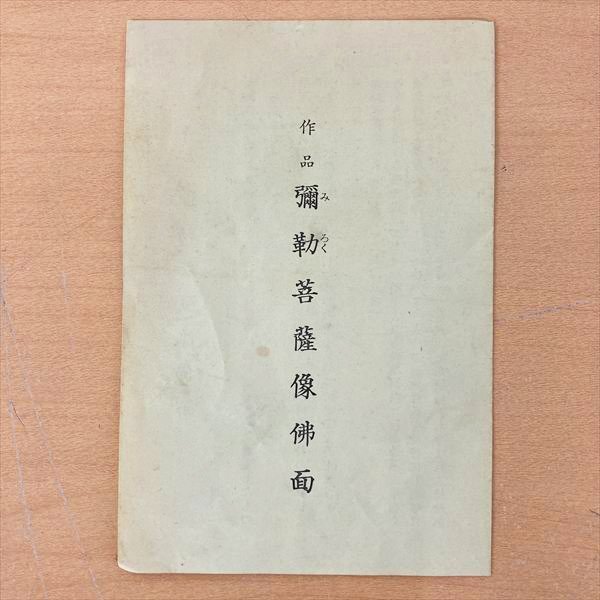 作品 彌勒菩薩像佛面
みろく